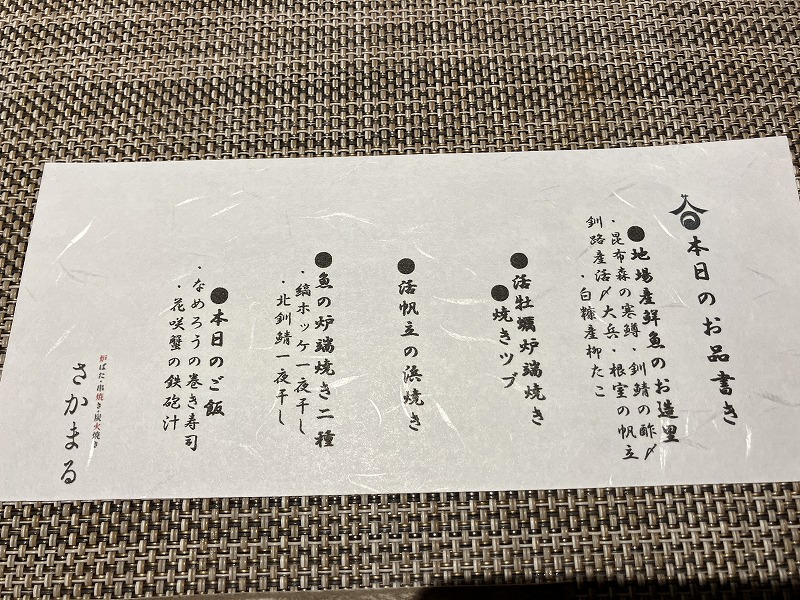 本日のお品書き
●地場産鮮魚のお造里
・昆布森の寒鱒・釧鯖の酢〆
釧路産活〆大兵・根室の帆立
・白糠産柳たこ
●活牡蠣炉端焼き
●焼きツブ
●活帆立の浜焼き
●魚の炉端焼き二種
・縞ホッケ一夜干し
・北釧鯖一夜干し
●本日のご飯
・なめろうの巻き寿司
・花咲蟹の鉄砲汁
炉ばた・串焼き・炭火焼き
さかまる